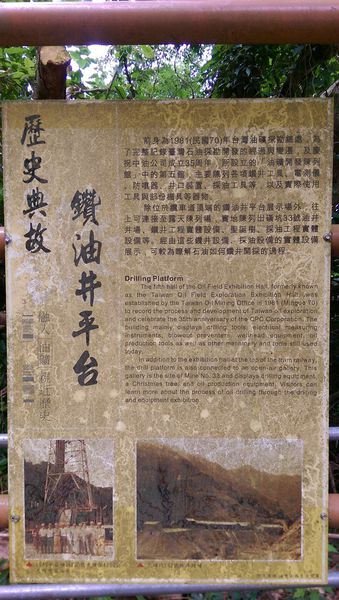 歷史典故
鑽油井平台
前身為1981(民國70)年台灣油礦探勘總處，為
了完整記錄臺灣石油探勘開發的經過與變遷，及慶
祝中油公司成立35周年，所設立的「油礦開發陳列
館」中的第五館，主要陳列各項鑽井工具、電測儀
、防噴器、井口裝置、採油工具等，以及實際使用
工具與部份廚具等器物。
除位於纜車道頂端的鑽油井平台展示場外，往
上可連接至露天陳列場，實地陳列出磺坑33號油井
井場、鑽井工程實體設備、聖誕樹、採油工程實體
設備等。經由這些鑽井設備、採油設備的實體設備
展示，可較為瞭解石油如何鑽井開採的過程。
Drilling Platform
The fifth hall of the Oil Field Exhibition Hall, formerly known
as the Taiwan Oil Field Exploration Exhibition Hall, was
established by the Taiwan Oil Mining Office in 1981 (Minguo 70)
to record the process and development of Taiwan oil exploration
and celebrate the 35th anniversary of the CPC Corporation. The
building mainly displays drilling tools, electrical measuring
instruments, blowout preventers, wellhead equipment, oil
production tools as well as other machinery and tools still used
today.
In addition to the exhibition hall at the top of the tram railway,
the drill platform is also connected to an open-air gallery. This
gallery is the site of Mine No. 33 and displays drilling equipment,
a Christmas tree, and oil production equipment. Visitors can
learn more about the process of oil drilling through the drilling
and equipment exhibition.